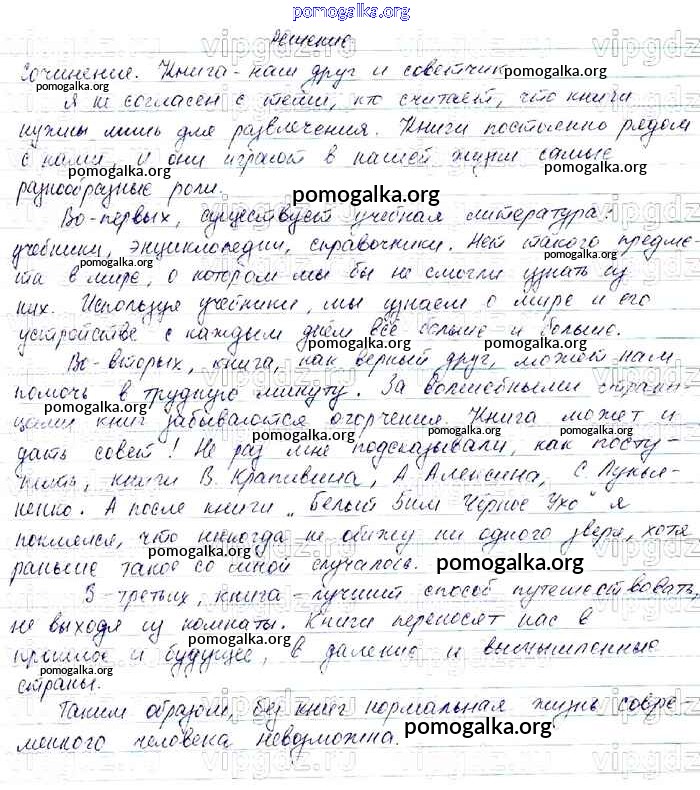 pomogalka.org
Решение
Сочинение. Книга - наш друг и советчик
pomogalka.org
Я не согласен с теми, кто считает, что книги
нужны лишь для развлечения. Книги постоянно рядом
с нами, и они играют в нашей жизни самые
pomogalka.org
разнообразные роли.
pomogalka.org
Во-первых, существует учебная литература:
учебники, энциклопедии, справочники. Нет такого предме-
pomogalka.org
pomogalka.org
та в мире, о котором мы бы не смогли узнать из
них. Используя учебники, мы узнаем о мире и его
устройстве с каждым днём всё больше и больше.
pomogalka.org
pomogalka.org
Во-вторых, книга, как верный друг, может нам
помочь в трудную минуту. За волшебными страни-
pomogalka.org
цами книг забываются огорчения. Книга может и
pomogalka.org
дать совет! Не раз мне подсказывали, как посту-
pomogalka.org
пать, книги В. Крапивина, А. Алексина, С. Лукья-
ненко. А после книги „Белый Бим Чёрное Ухо" я
pomogalka.org
поклялся, что никогда не обижу ни одного зверя, хотя
pomogalka.org
раньше такое со мной случалось.
pomogalka.org
В-третьих, книга - лучший способ путешествовать,
не выходя из комнаты. Книги переносят нас в
pomogalka.org
прошлое и будущее, в далекие и вымышленные
страны.
Таким образом, без книг нормальная жизнь совре-
pomogalka.org
менного человека невозможна.